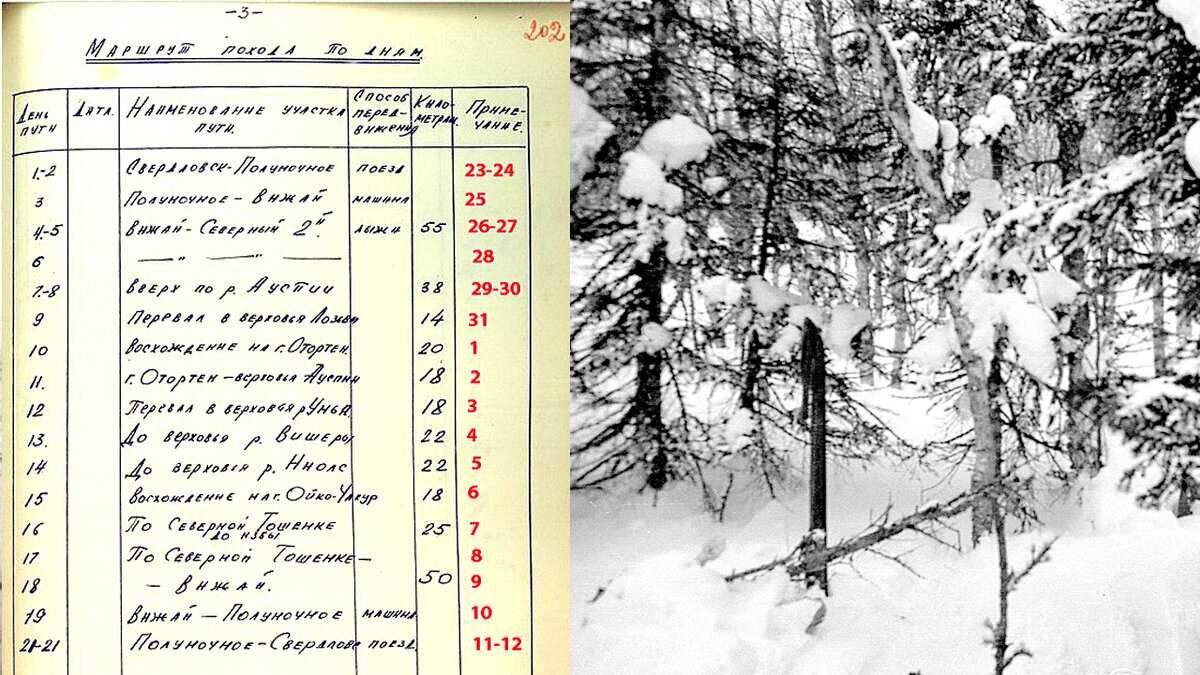 -3-
202
Маршрут похода по дням
День пути Дата. Наименование участка пути. Способ передвижения Километраж. Примечание.
1-2 Свердловск-Полуночное поезд 23-24
3 Полуночное - Вижай машина 25
4-5 Вижай-Северный 2й. лыжи 55 26-27
6 —"— —"— —— 28
7-8 Вверх по р. Ауспии 38 29-30
9 Перевал в верховья Лозьвы 14 31
10 Восхождение на г. Отортен. 20 1
11. г. Отортен - верховья Ауспии 18 2
12 Перевал в верховья р. Унья 18 3
13. До верховья р. Вишеры 22 4
14 До верховья р. Ниолс 22 5
15 Восхождение на г. Ойко-Чакур 18 6
16 По Северной Тошемке до избы 25 7
17 По Северной Тошемке - 8
18 - Вижай. 50 9
19 Вижай - Полуночное машина 10
20-21 Полуночное-Свердловск поезд. 11-12